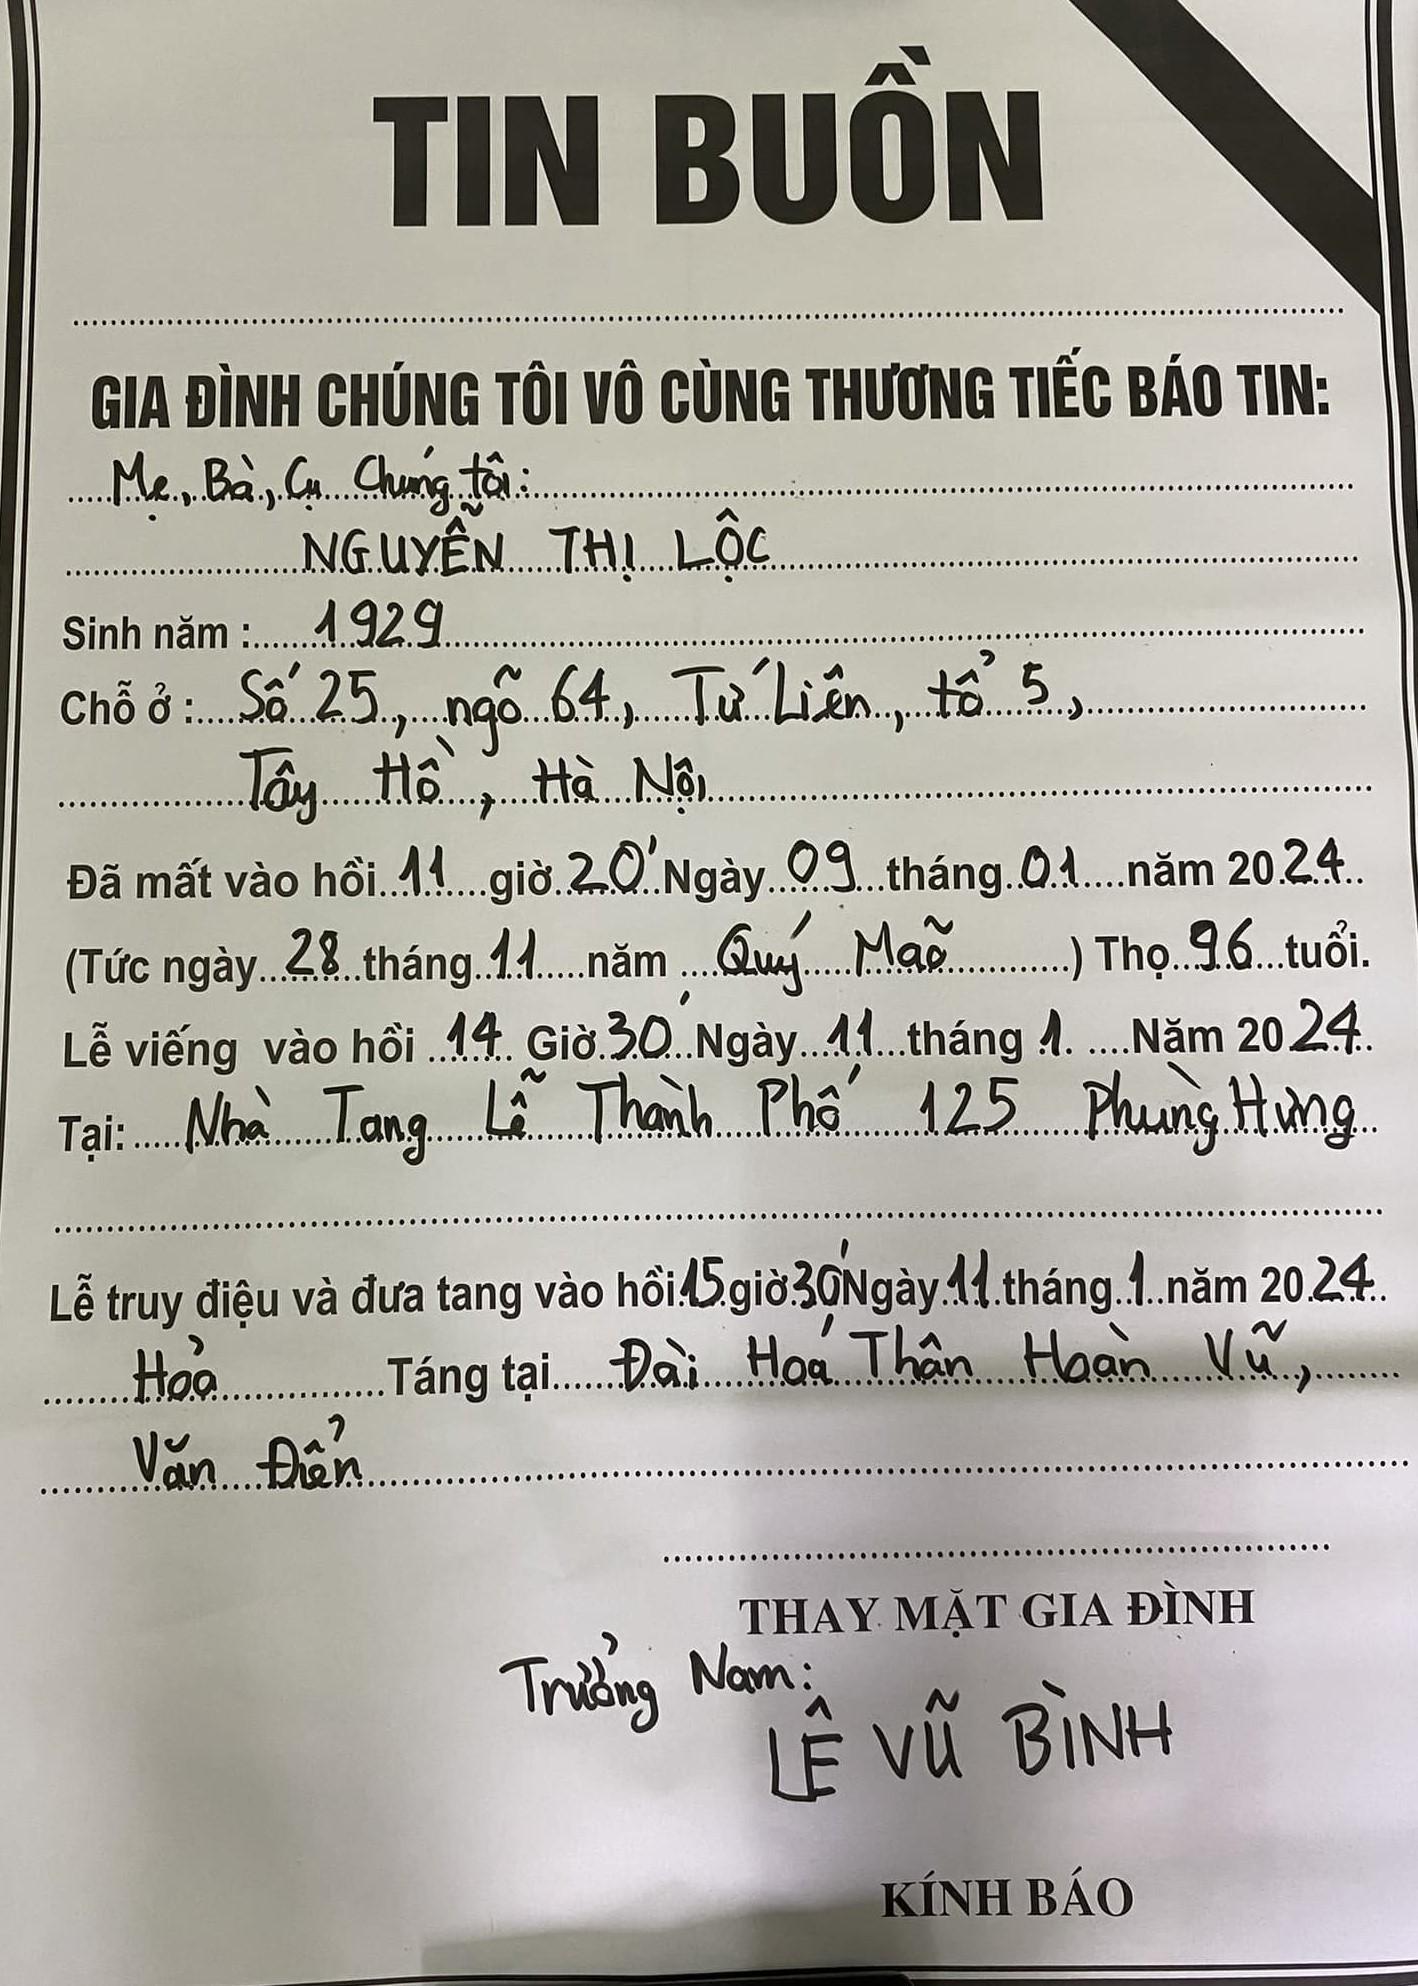 TIN BUỒN
GIA ĐÌNH CHÚNG TÔI VÔ CÙNG THƯƠNG TIẾC BÁO TIN:
Mẹ, Bà, Cụ Chúng tôi:
NGUYỄN THỊ LỘC
Sinh năm : 1929
Chỗ ở : Số 25, ngõ 64, Tứ Liên, tổ 5,
Tây Hồ, Hà Nội
Đã mất vào hồi 11 giờ 20' Ngày 09 tháng 01 năm 2024
(Tức ngày 28 tháng 11 năm Quý Mão ) Thọ 96 tuổi.
Lễ viếng vào hồi 14 Giờ 30' Ngày 11 tháng 1. Năm 2024
Tại: Nhà Tang Lễ Thành Phố 125 Phùng Hưng
Lễ truy điệu và đưa tang vào hồi 15 giờ 30' Ngày 11 tháng 1 năm 2024
Hỏa Táng tại Đài Hoá Thân Hoàn Vũ,
Văn Điển
THAY MẶT GIA ĐÌNH
Trưởng Nam:
LÊ VŨ BÌNH
KÍNH BÁO